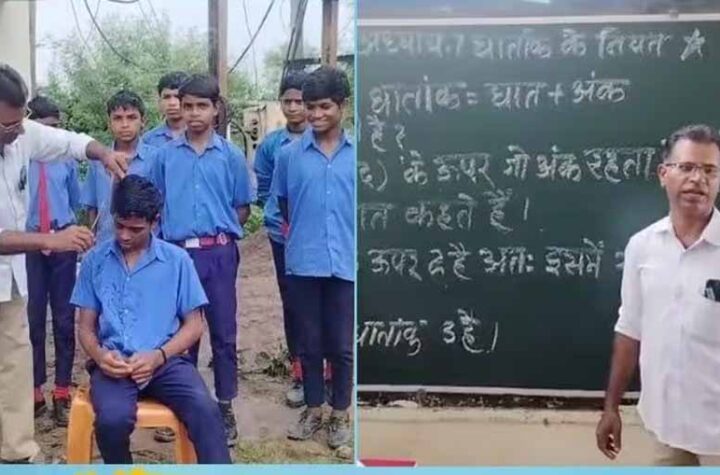 अध्याय.7 घातांक के नियम
घातांक = घात + अंक
है?
के ऊपर जो अंक रहता
कहते हैं।
ऊपर 3 है अतः इसमें
घातांक 3 है।